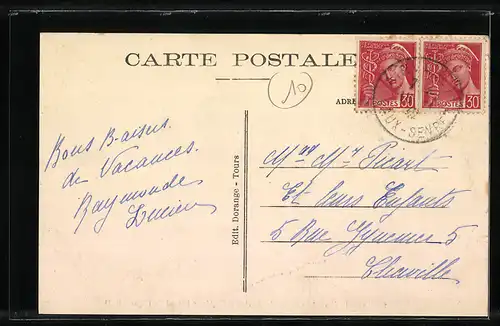 CARTE POSTALE
10
ADRE
30 POSTES 30
UX-SEVRES
Bons Baisers
de Vacances.
Raymonde
Lucien
Edit. Dorange - Tours
Mme Mr Picart
Et leurs Enfants
5 Rue 5
Chaville